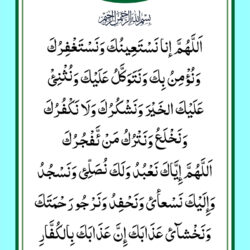 بسم الله الرحمن الرحيم
اَللّٰهُمَّ إِنا نَسْتَعِينُكَ وَنَسْتَغْفِرُكَ
وَنُؤْمِنُ بِكَ وَنَتَوَكَّلُ عَلَيْكَ وَنُثْنِيْ
عَلَيْكَ الْخَيْرَ وَنَشْكُرُكَ وَلَا نَكْفُرُكَ
وَنَخْلَعُ وَنَتْرُكُ مَنْ يَّفْجُرُكَ
اَللّٰهُمَّ إِيَّاكَ نَعْبُدُ وَلَكَ نُصَلِّيْ وَنَسْجُدُ
وَإِلَيْكَ نَسْعأىْ وَنَحْفِدُ وَنَرْجُو رَحْمَتَكَ
وَنَخْشآىْ عَذَابَكَ إِنَّ عَذَابَكَ بِالْكُفَّارِ